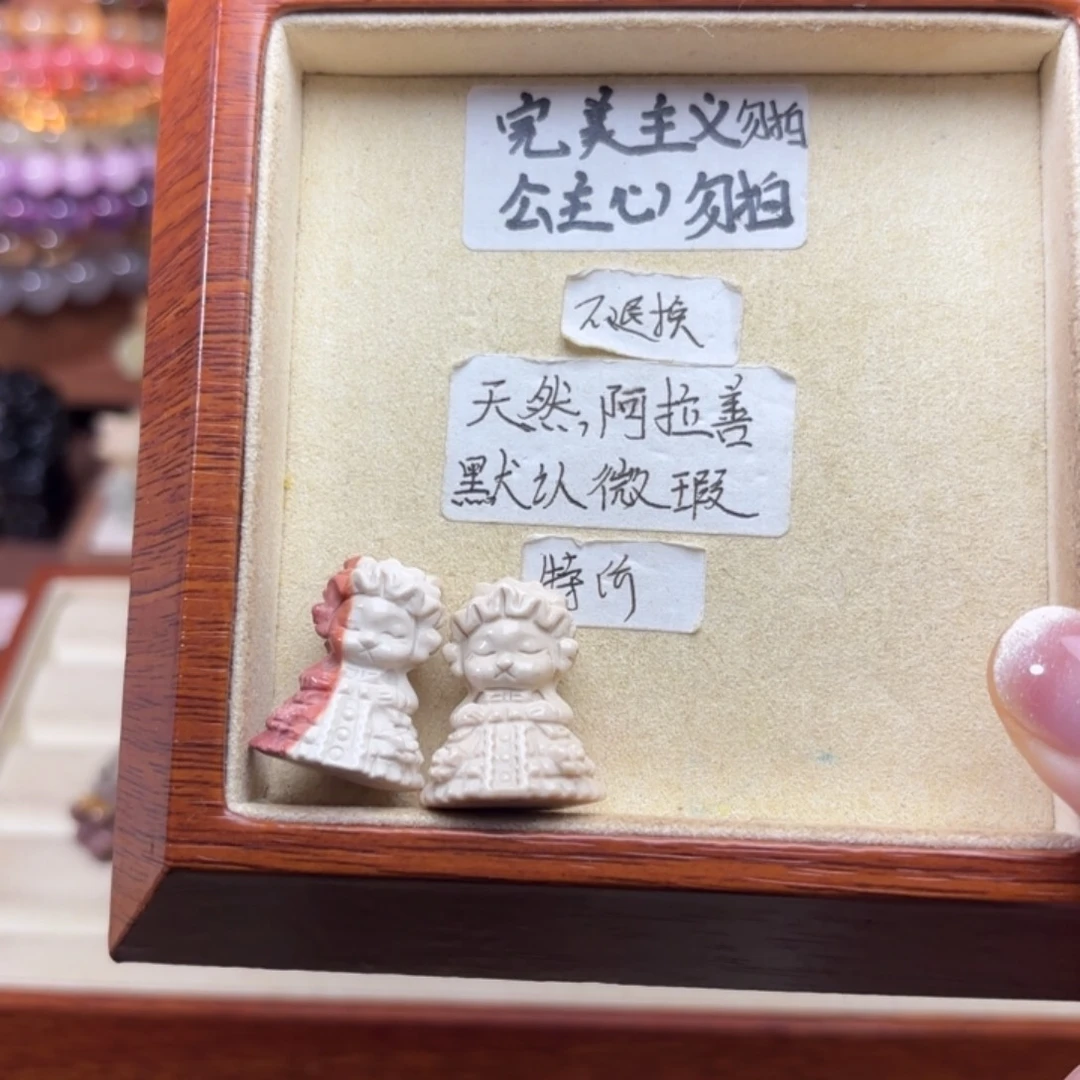 完美主义勿拍
公主心勿拍
不退换
天然,阿拉善
默认微瑕
特价